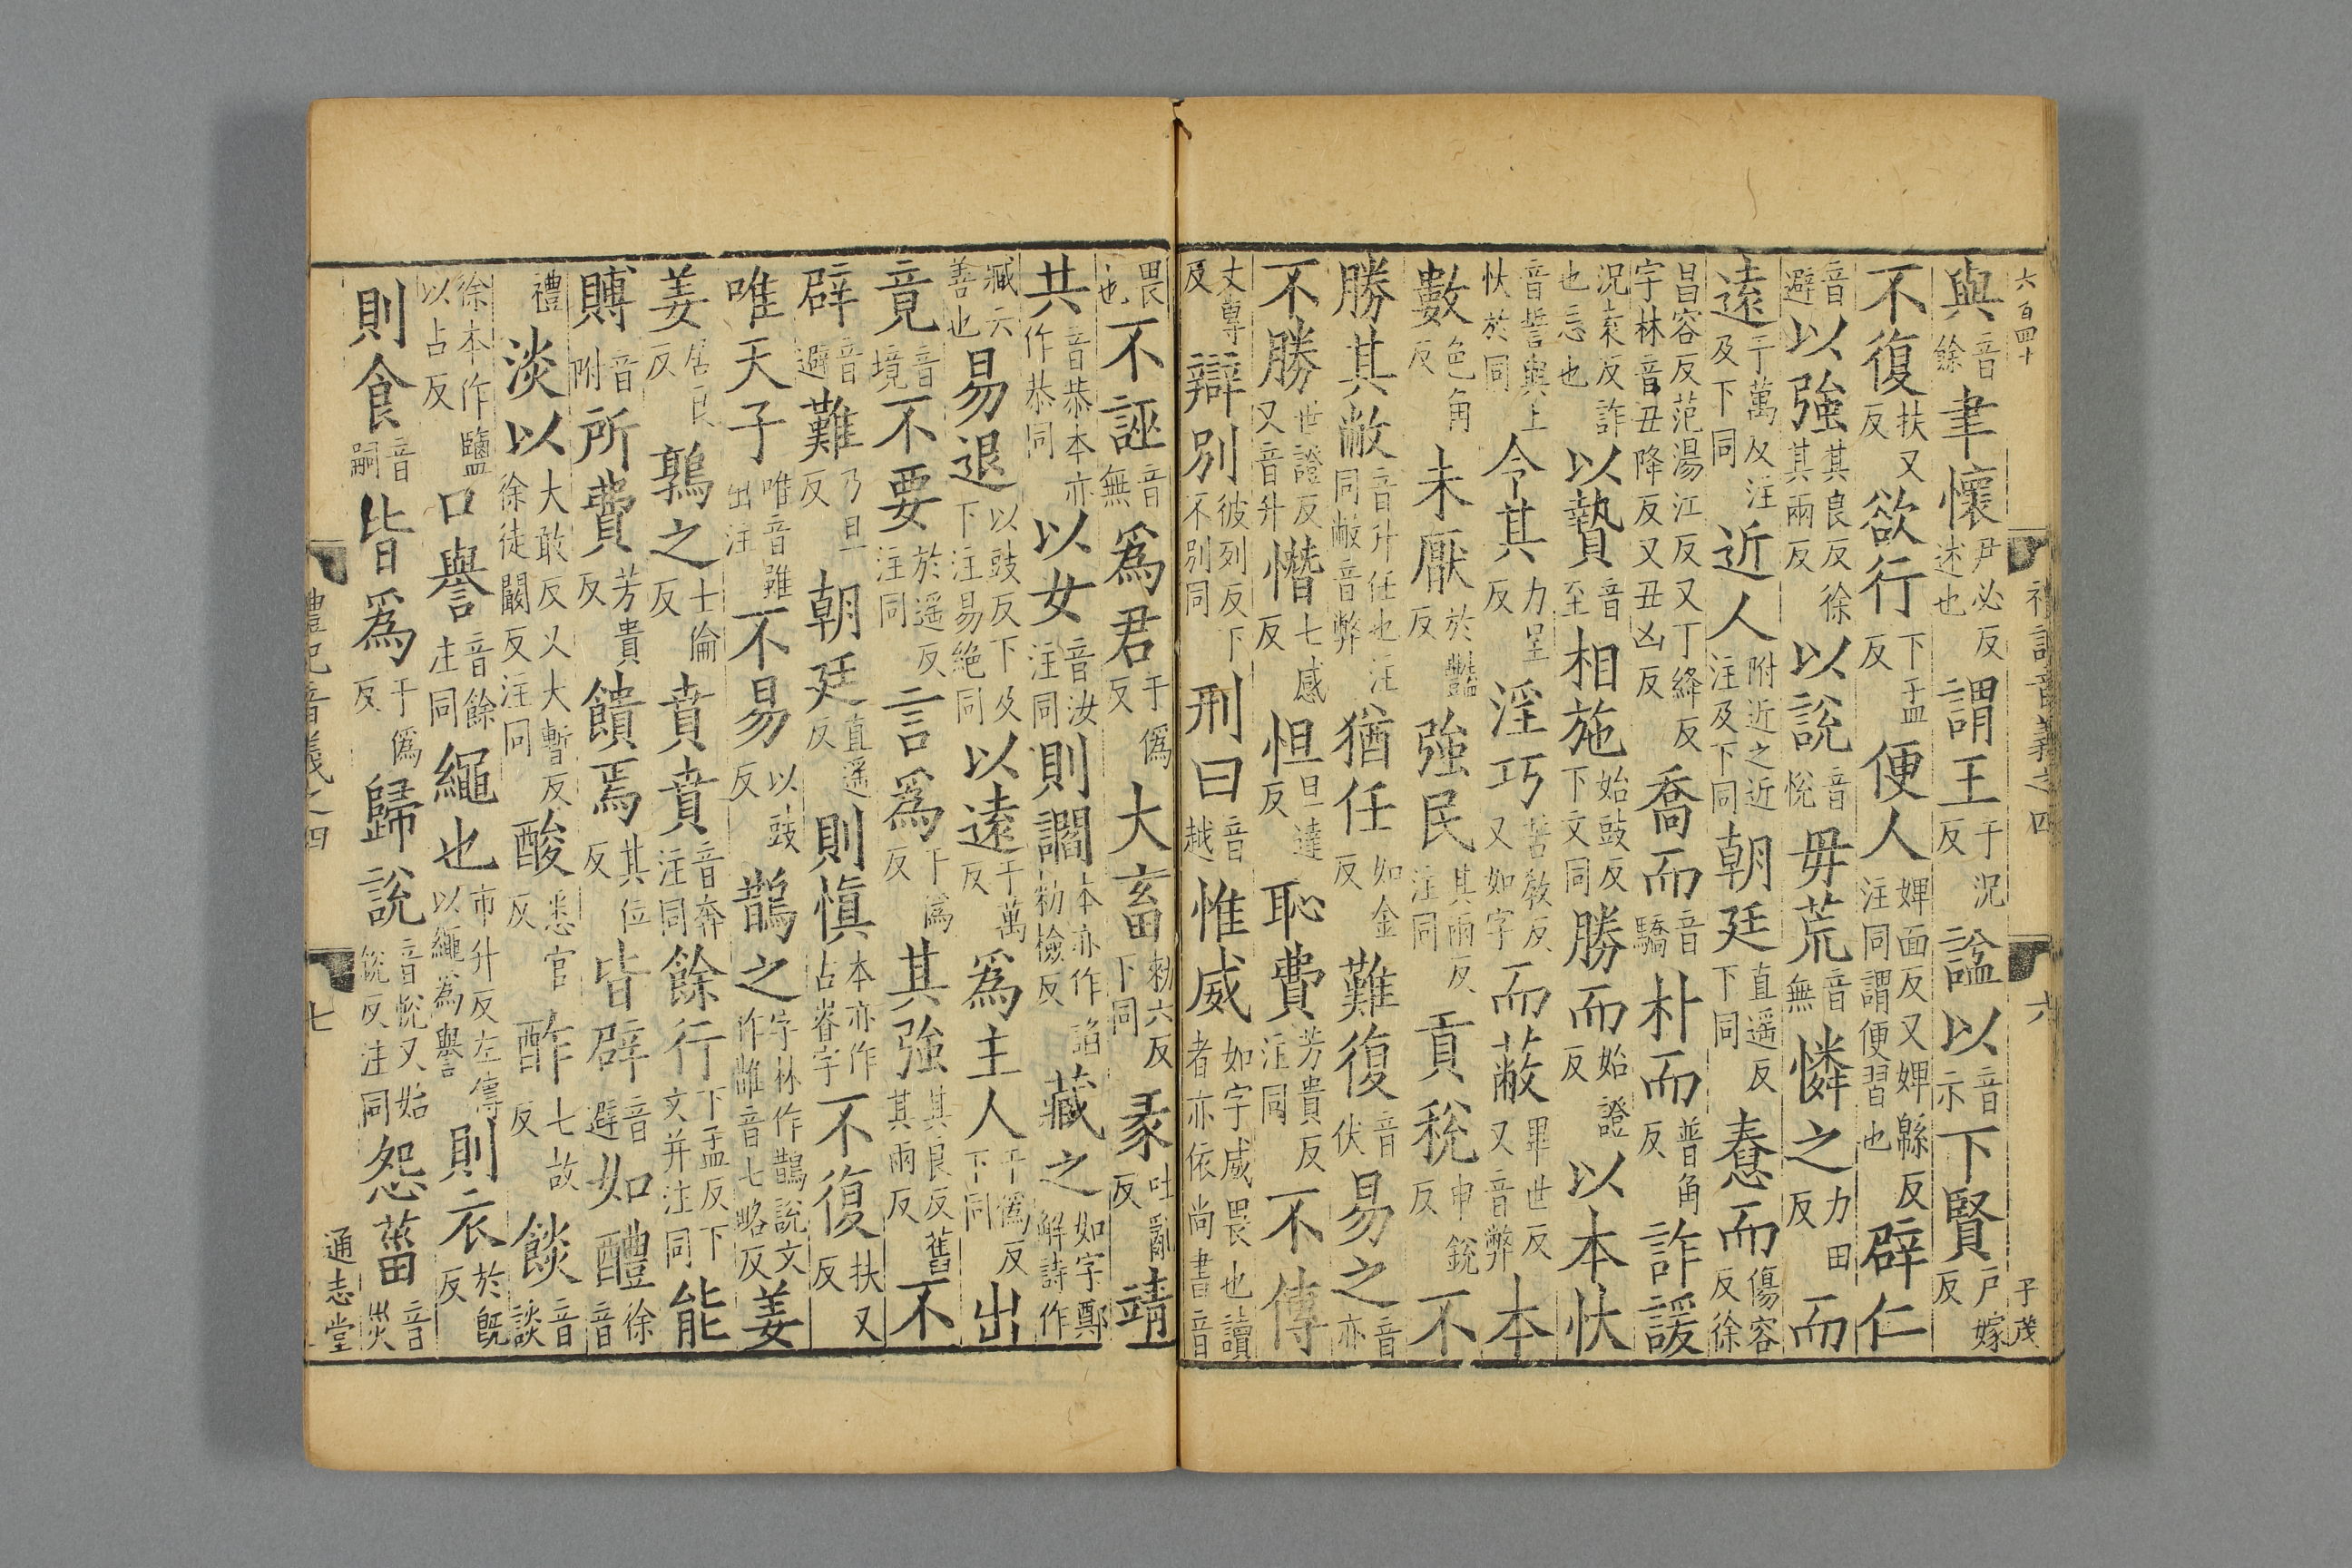 六百四十 禮記音義之四 六 子茂
與音餘聿懷尹必反述也謂王于況反諡以音示下賢戶嫁反
不復扶又反欲行下孟反便人婢面反又婢緜反注同謂便習也辟仁
音避以強其良反徐其兩反以說音悅毋荒音無憐之力田反而
遠于萬反注及下同近人附近之近注及下同朝廷直遥反下同惷而傷容反徐
昌容反范湯江反又丁絳反字林音丑降反又丑凶反喬而音驕朴而普角反詐諼
況袁反詐也忘也以贄音至相施始豉反下文同勝而始證反以本忕
音誓與上忕於同令其力呈反淫巧苦教反又如字而蔽畢世反又音弊本
數色角反未厭於豔反強民其兩反注同貢稅申銳反不
勝其敝音升任也注同敝音弊猶任如金反難復音伏易之音亦
不勝世證反又音升憯七感反怛旦達反恥費芳貴反注同不傳
丈專反辯別彼列反下不別同刑曰音越惟威如字威畏也讀者亦依尚書音
畏也不誣音無爲君于僞反大畜敕六反下同彖吐亂反靖
共音恭本亦作恭同以女音汝注同則讇本亦作諂勑檢反藏之如字鄭解詩作
臧云善也易退以豉反下及下注易絶同以遠于萬反爲主人于僞反下同出
竟音境不要於遥反注同言爲于僞反其強其良反舊其兩反不
辟音避難乃旦反朝廷直遥反則慎本亦作古眘字不復扶又反
唯天子唯音雖出注不易以豉反鵲之字林作䧿說文作誰音七略反姜
姜居良反鶉之士倫反賁賁音奔注同餘行下孟反下文并注同能
賻音附所費芳貴反饋焉其位反皆辟音避如醴徐音
禮淡以大敢反又大暫反徐徒闞反注同酸悉官反酢七故反餤音談
徐本作鹽以占反口譽音餘注同繩也市升反左傳以繩爲譽則衣於旣反
則食音嗣皆爲于僞反歸說音悅又始銳反注同怨菑音𤆎
禮記音義之四 七 通志堂